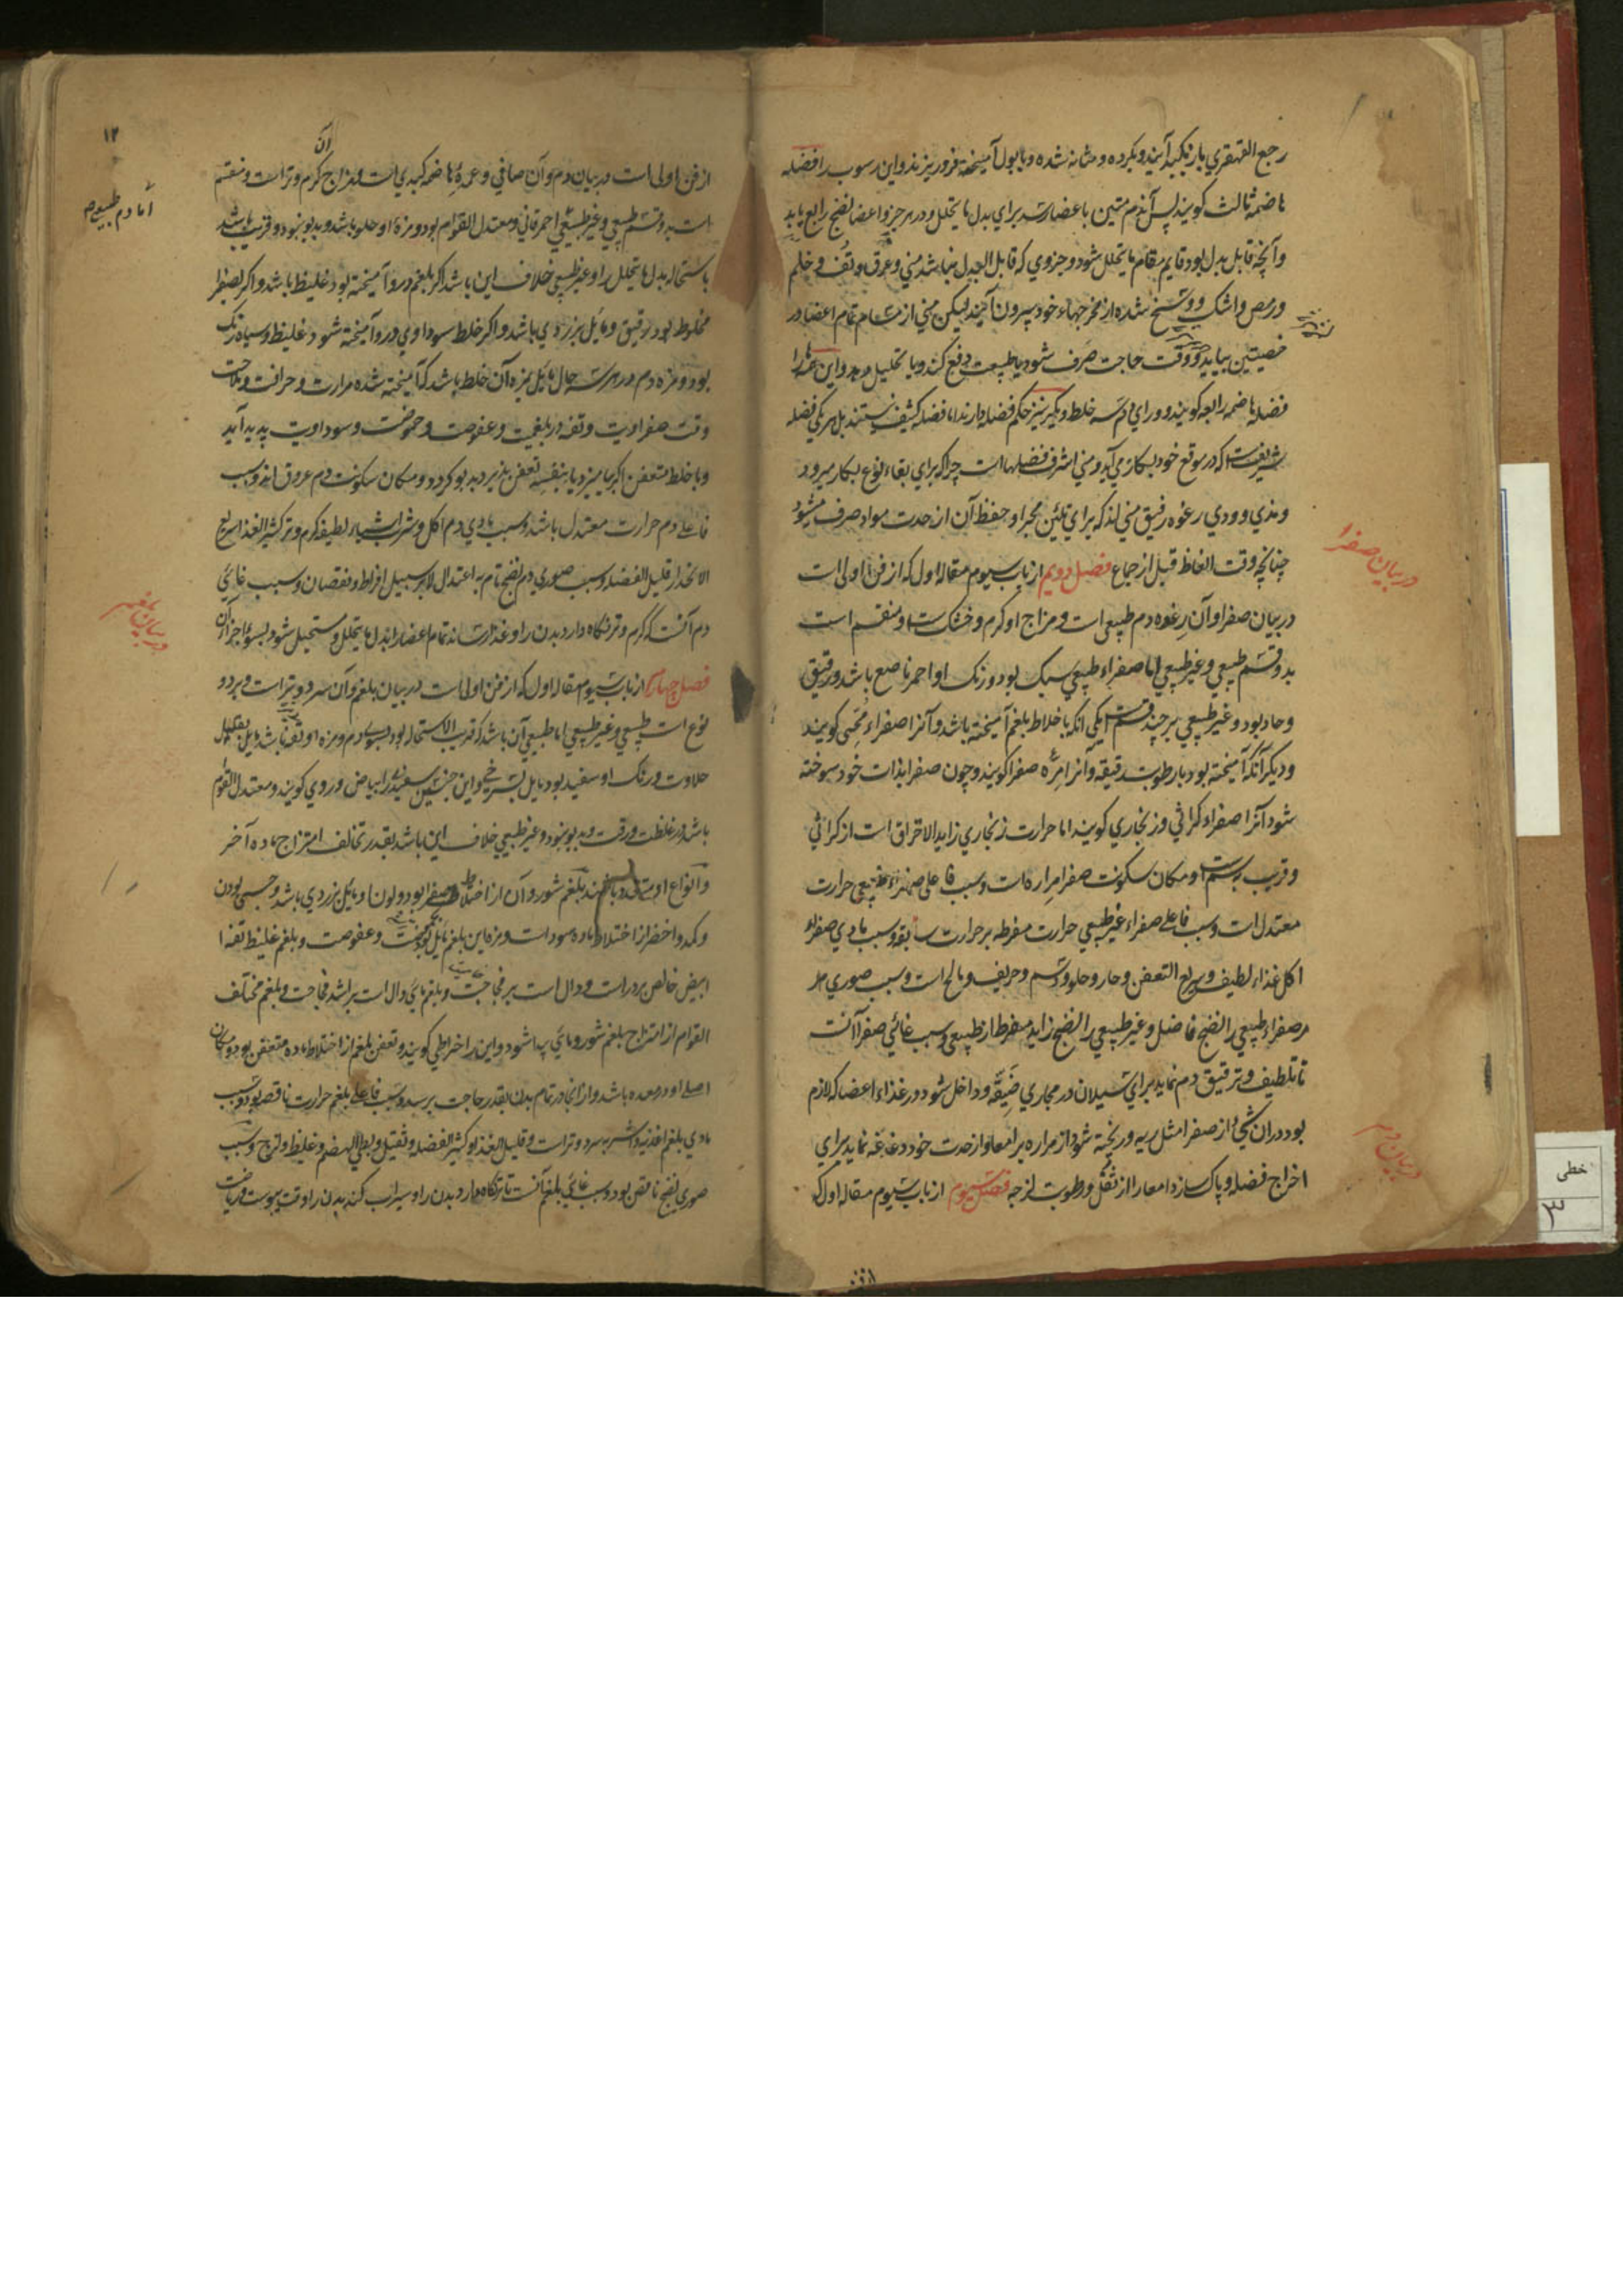 رجع القهقري باز بکبد آیند و بکرده و مثانه شده و با بول آمیخته فرو ریزند و این رسوب را فضله
هاضمه ثالث کویند پس آندم متین باعضا رسد برای بدل ما یتحلل و در هر جزو اعضا نضج رابع یابد
وآنچه قابل بدل بود قایم مقام ما یتحلل شود و جزوی که قابل البدل نباشد منی و عرق و تف و خلم
ورمص واشک و وسخ شده از مخرجهاء خود بیرون آیند لیکن منی از تمام اعضا در
خصیتین بیاید و وقت حاجت صرف شود یا طبیعت دفع کند و یا تحلیل دهد و این همه را
فضله هاضمه رابعه کویند و ورای دم سه خلط دیگر نیز حکم فضله دارند اما فضله کثیف نیستند بل هر یکی فضله
شریفست که در موقع خود بکار می آید و منی اشرف فضلهاست چرا که برای بقاء نوع بکار میرود
ومذی و ودی رغوه رقیق منی اند که برای تلئین مجرا و حفظ آن از حدت مواد صرف میشود
چنانچه وقت الغاظ قبل از جماع فصل دویم از باب سیوم مقاله اول که از فن اولی است
در بیان صفرا و آن رغوه دم طبیعی است و مزاج او کرم و خشک است و منقسم است
بدو قسم طبیعی و غیر طبیعی اما صفراء طبیعی سبک بود و رنک او احمر ناصع باشد و رقیق
وحاد بود و غیر طبیعی بر چند قسم است یکی انکه با خلاط بلغم آمیخته باشد و آنرا صفراء محی کویند
ودیکر آنکه آمیخته بود با رطوبت رقیقه و آنرا مره صفرا کویند و چون صفرا بذات خود سوخته
شود آنرا صفراء کراثی و زنجاری کویند اما حرارت زنجاری زاید الاحتراق است از کراثی
وقریب بسم است و مکان سکونت صفرا مراره است و سبب فاعلی صفراء طبیعی حرارت
معتدل است و سبب فاعلی صفراء غیر طبیعی حرارت مفرطه بر حرارت سابق و سبب مادی صفرا
اکل غذاء لطیف و سریع التعفن و حار و حلو و دسم و حریف و مالح است و سبب صوری مر
مر صفراء طبیعی را نضج فاضل و غیر طبیعی را نضج زاید مفرط از طبیعی و سبب غائی صفرا آنست
تا تلطیف و ترقیق دم نماید برای سیلان در مجاری ضیقه و داخل شود در غذاء اعضا که لازم
بود دران شیٔ از صفرا مثل ریه و ریخته شود از مراره بر امعا و از حدت خود دغدغه نماید برای
اخراج فضله و پاک سازد امعا را از ثفل و رطوبت لزجه فصل سیوم از باب سیوم مقاله اول که
در بیان صفرا
در بیان دم
خطی
۳
۱۲
از فن اولی است در بیان دم و آن صافی و عمده هاضمه کبدی است و مزاج آن کرم و تر است و منقسم
است بدو قسم طبیعی و غیر طبیعی احمر قانی و معتدل القوام بود و مزه او حلو باشد و بدبو نبود و قریب باشد
باستحاله بدل ما یتحلل را و غیر طبیعی خلاف این باشد اکر بلغم درو آمیخته بود غلیظ باشد و اکر بصفرا
مخلوط بود رقیق و مایل بزردی باشد و اکر خلط سوداوی درو آمیخته شود غلیظ و سیاه رنک
بود و مزه دم در هر سه حال مایل بمزه آن خلط باشد که آمیخته شده مرارت و حرافت و ملاحت
وقت صفراویت و تفه در بلغمیت و عفوصت و حموضت و سوداویت پدید آید
ویا خلط متعفن اکر بیامیزد یا بنفسه تعفن پذیرد بدبو کردد و مکان سکونت دم عروق اند و سبب
فاعلی دم حرارت معتدل باشد و سبب مادی دم اکل و شراب اشیاء لطیفه کرم و تر کثیر الغذا سریع
الانحدار قلیل الفضله و سبب صوری دم نضج تام به اعتدال لا بر سبیل افراط و نقصان و سبب غائی
دم آنست که کرم و تر نگاه دارد بدن را و غذا رساند تمام اعضا را بدل ما یتحلل و مستحیل شود بسوء اجزاء آن
فصل چهارم از باب سیوم مقاله اول که از فن اولی است در بیان بلغم و آن سرد و تر است و بر دو
نوع است طبیعی و غیر طبیعی اما طبیعی آن باشد که قریب الاستحاله بود بسوی دم و مزه او تفه باشد مایل بقلیل
حلاوت و رنک او سفید بود مایل بسرخی و این چنین سفیدی را بیاض وردی کویند و معتدل القوام
باشد در غلظت و رقت و بدبو نبود و غیر طبیعی خلاف این باشد بقدر تخالف امتزاج ماده آخر
بلغم شور و آن از اختلاط صفرا بود و لون او مایل بزردی باشد
وکمد و اخضر از اختلاط ماده سوداست و مزه این بلغم مایل بحموضت و عفوصت و بلغم غلیظ تفه
ابیض خالص بردراست و دال است بر فجاجت و بلغم مائی دال است بر اشد فجاجت و بلغم مختلف
القوام از امتزاج بلغم شور و مائی پیدا شود و این را خراطی کویند و تعفن بلغم از اختلاط ماده متعفن بود و مکان
اصلی او در معده باشد و از انجا در تمام بدن بقدر حاجت برسد و سبب فاعلی بلغم حرارت ناقصه بود و سبب
مادی بلغم اغذیه و اشربه سرد و تر است و قلیل الغذا و کثیر الفضله و ثقیل و بطی الهضم و غلیظ و لزج و سبب
صوری نضج ناقص بود و سبب غائی بلغم آنست تا تر نگاه دارد بدن را و سیراب کند بدن را وقت یبوست و ریاضت
اما دم طبیعی
در بیان بلغم